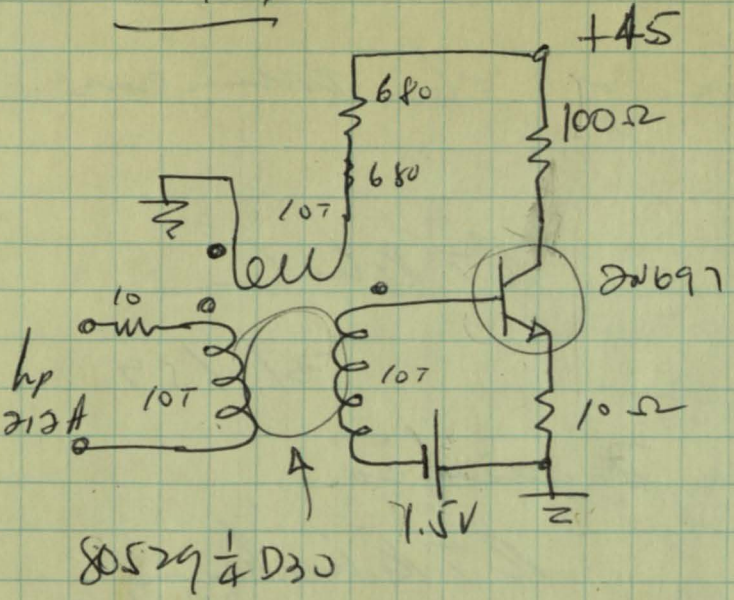 +45
680
100Ω
680
10T
2N697
10
10T
10T
hp
212A
10Ω
7.5V
80529 1/4 D30